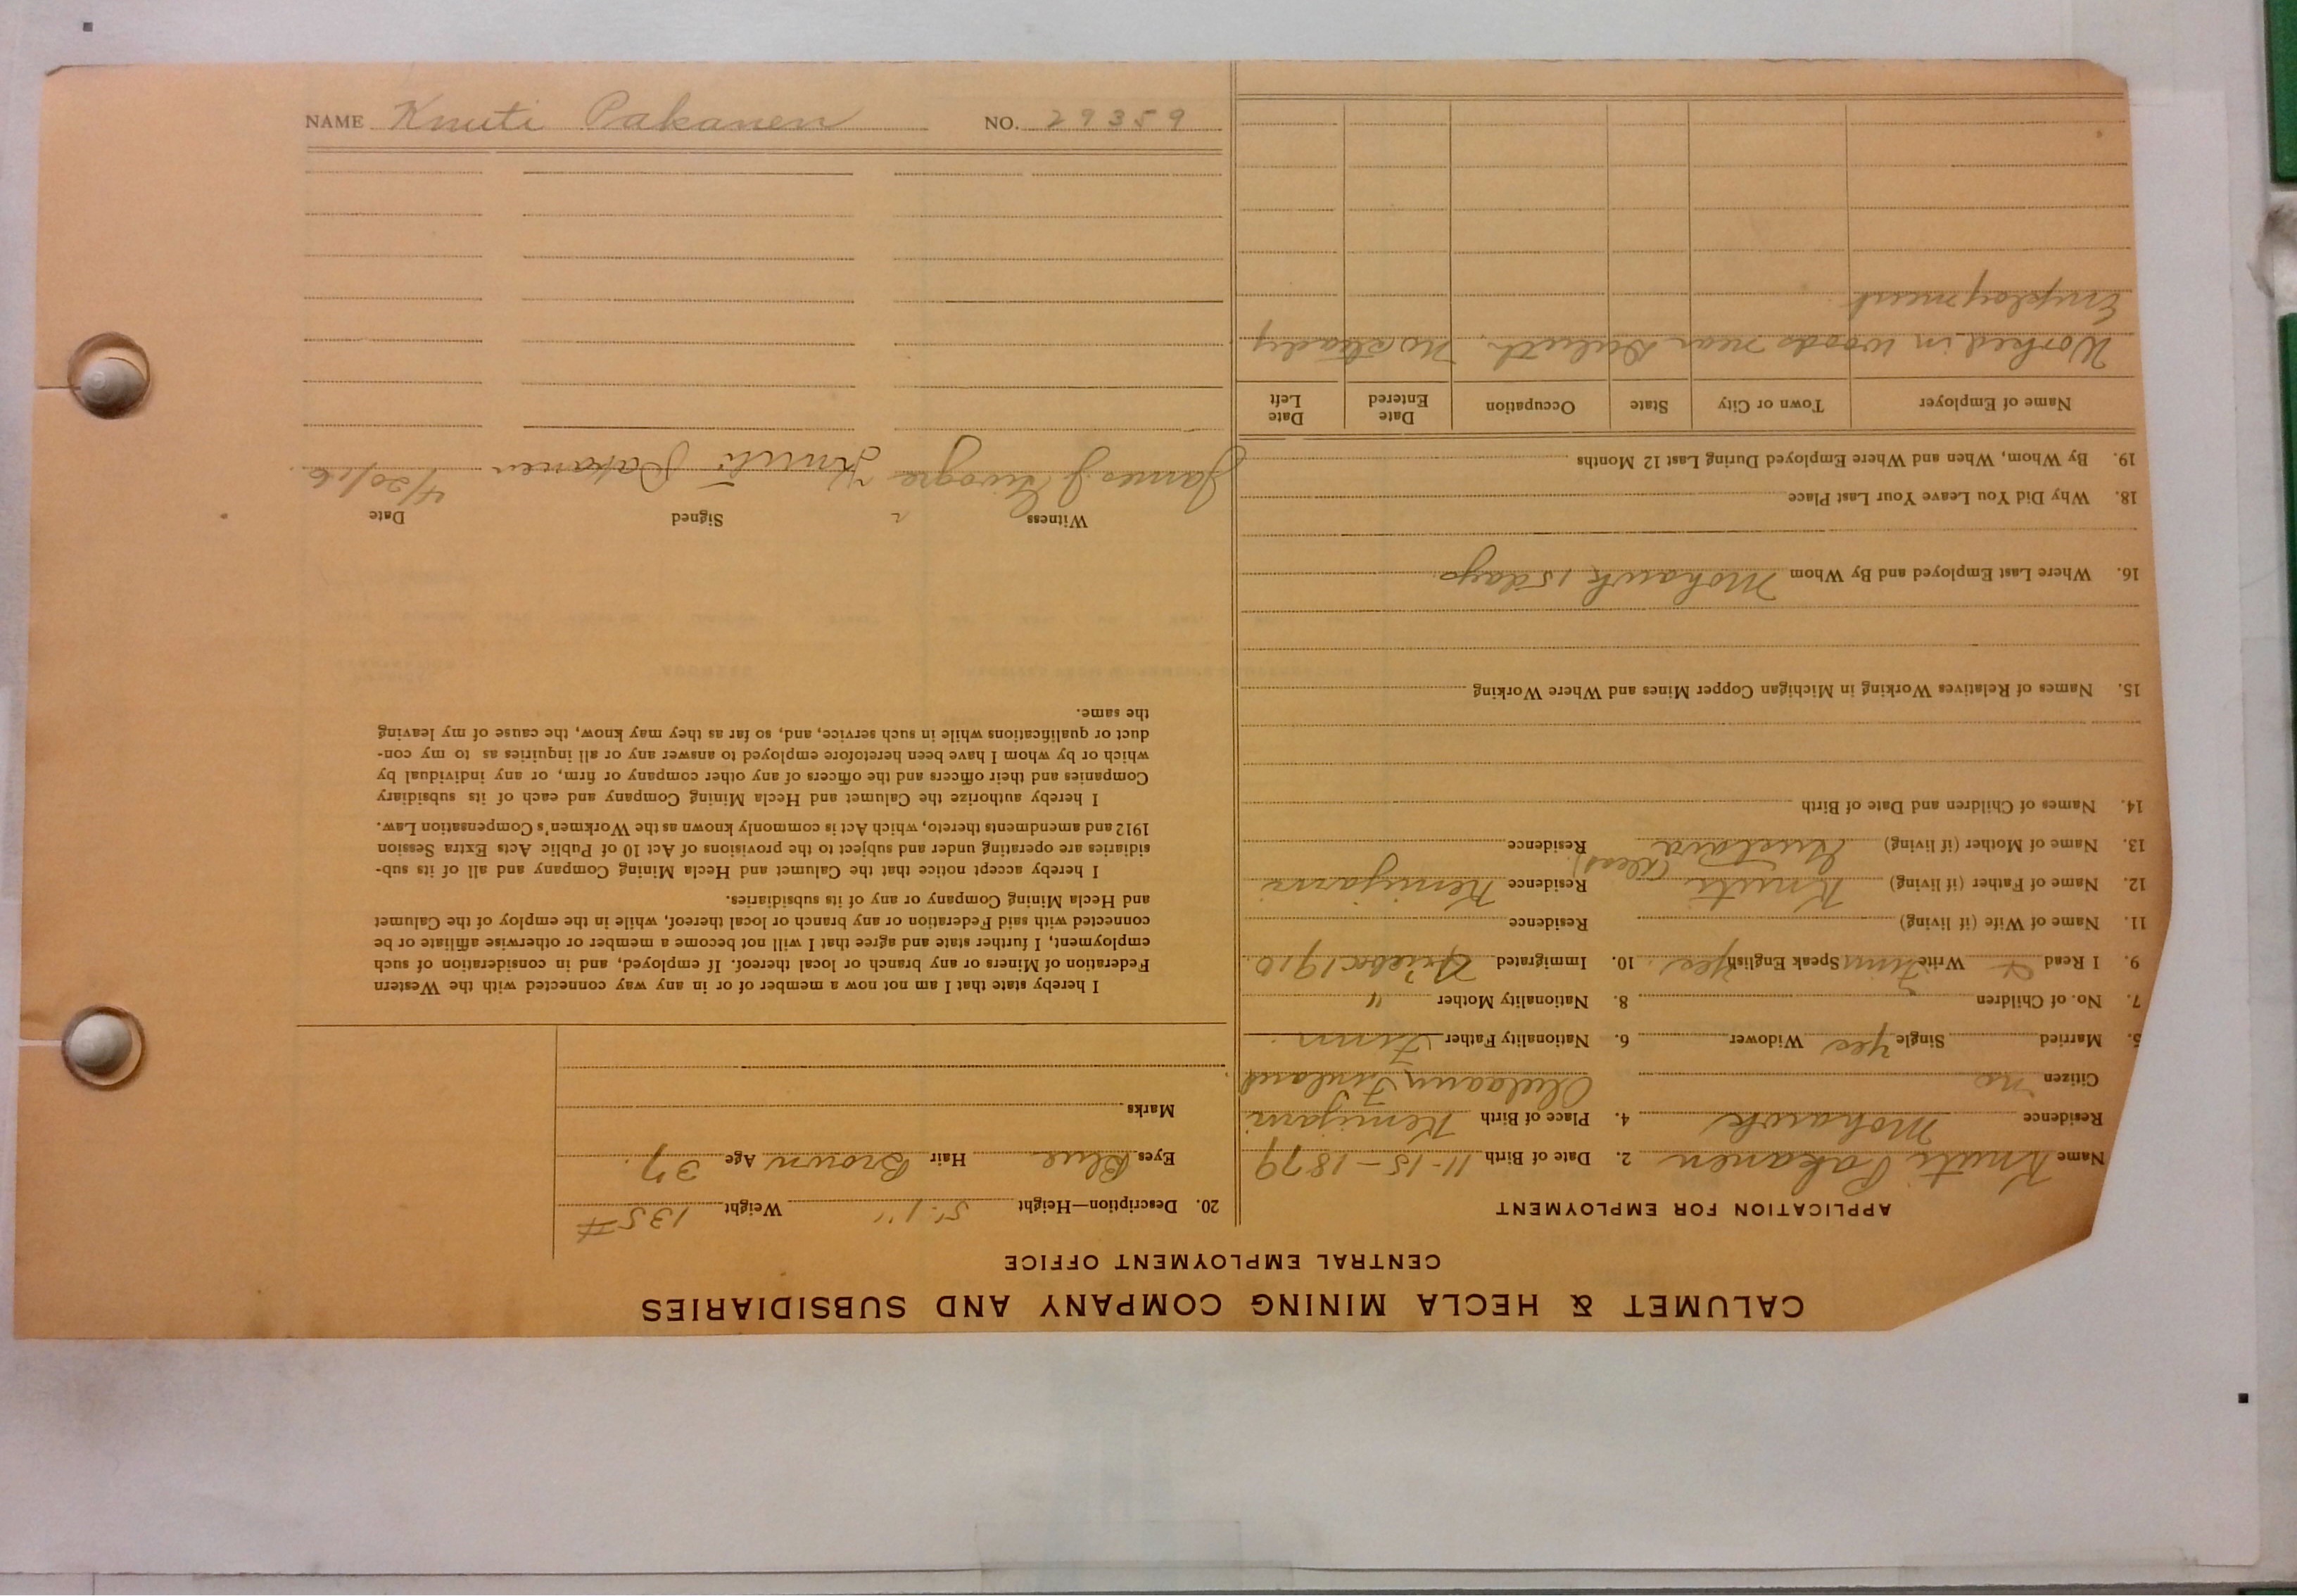 CALUMET & HECLA MINING COMPANY AND SUBSIDIARIES
CENTRAL EMPLOYMENT OFFICE
APPLICATION FOR EMPLOYMENT
Name Knuti Pakanen 2. Date of Birth 11-15-1879
Residence Mohawk 4. Place of Birth Kemijarvi
Citizen no Finland
5. Married Single yes Widower 6. Nationality Father Finn
7. No. of Children 8. Nationality Mother "
9. I Read & Write Finn Speak English yes 10. Immigrated 1910
11. Name of Wife (if living) Residence
12. Name of Father (if living) Knuti (dead) Residence Kemijarvi
13. Name of Mother (if living) Residence
14. Names of Children and Date of Birth
15. Names of Relatives Working in Michigan Copper Mines and Where Working
16. Where Last Employed and By Whom Mohawk 15 days.
18. Why Did You Leave Your Last Place
19. By Whom, When and Where Employed During Last 12 Months
Name of Employer Town or City State Occupation Date Entered Date Left
Worked in woods near Duluth, no steady
Employment
20. Description—Height 5' 1" Weight 135 #
Eyes Blue Hair Brown Age 37.
Marks
I hereby state that I am not now a member of or in any way connected with the Western
Federation of Miners or any branch or local thereof. If employed, and in consideration of such
employment, I further state and agree that I will not become a member or otherwise affiliate or be
connected with said Federation or any branch or local thereof, while in the employ of the Calumet
and Hecla Mining Company or any of its subsidiaries.
I hereby accept notice that the Calumet and Hecla Mining Company and all of its sub-
sidiaries are operating under and subject to the provisions of Act 10 of Public Acts Extra Session
1912 and amendments thereto, which Act is commonly known as the Workmen's Compensation Law.
I hereby authorize the Calumet and Hecla Mining Company and each of its subsidiary
Companies and their officers and the officers of any other company or firm, or any individual by
which or by whom I have been heretofore employed to answer any or all inquiries as to my con-
duct or qualifications while in such service, and, so far as they may know, the cause of my leaving
the same.
Witness Signed Date
James J Knuti Pakanen 4/20/16
NAME Knuti Pakanen NO. 29359